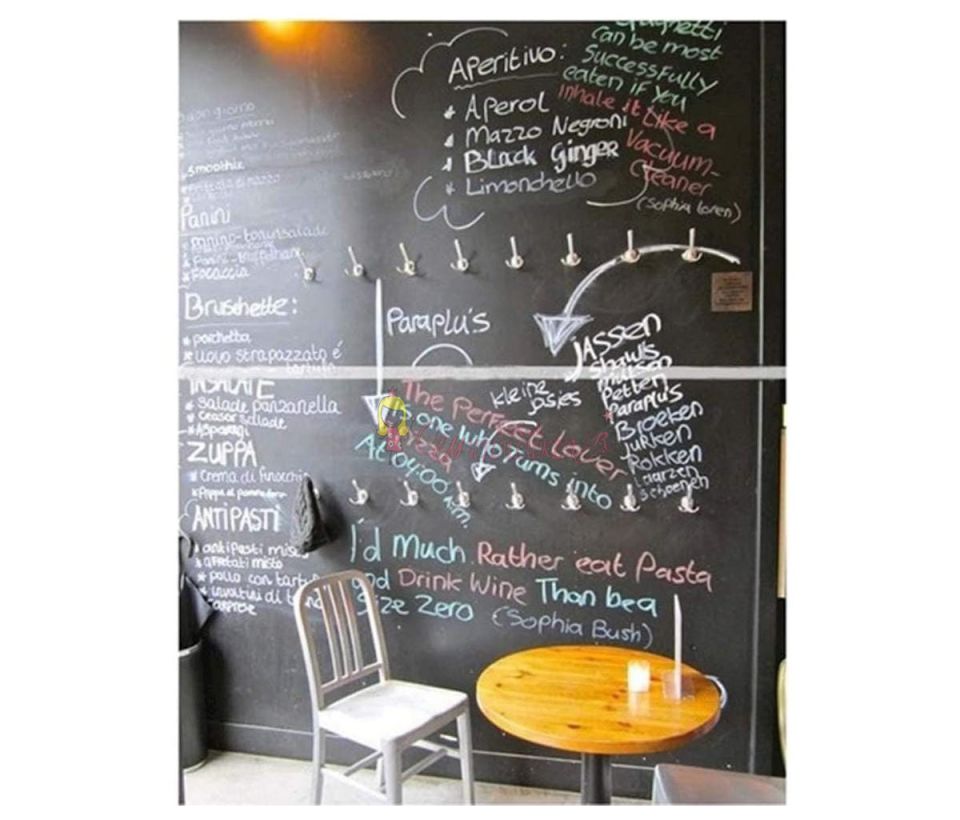 Spaghetti
can be most
Successfully
eaten if you
inhale it Like a
Vacuum-
Cleaner
(Sophia Loren)
Aperitivo:
* Aperol
* Mazzo Negroni
* Black Ginger
* Limonchello
Buon giorno
smoothie
Panini
Focaccia
Bruschette:
* porchetta
* uovo strapazzato é
tartufo
INSALATE
* Salade panzanella
* Ceasar Salade
* Asparagi
ZUPPA
* Crema di finocchio
ANTIPASTI
* antipasti misto
* affettati misto
* pollo con tartufo
* involtini di
* caprese
Paraplu's
kleine
jasjes
JASSEN
Shawls
Mutsen
Petten
*Paraplus
Broeken
Jurken
Rokken
Laarzen
Schoenen
The Perfect Lover
is one who Turns into
Pizza
At 04:00 a.m.
I'd Much Rather eat Pasta
and Drink Wine Than be a
Size Zero (Sophia Bush)